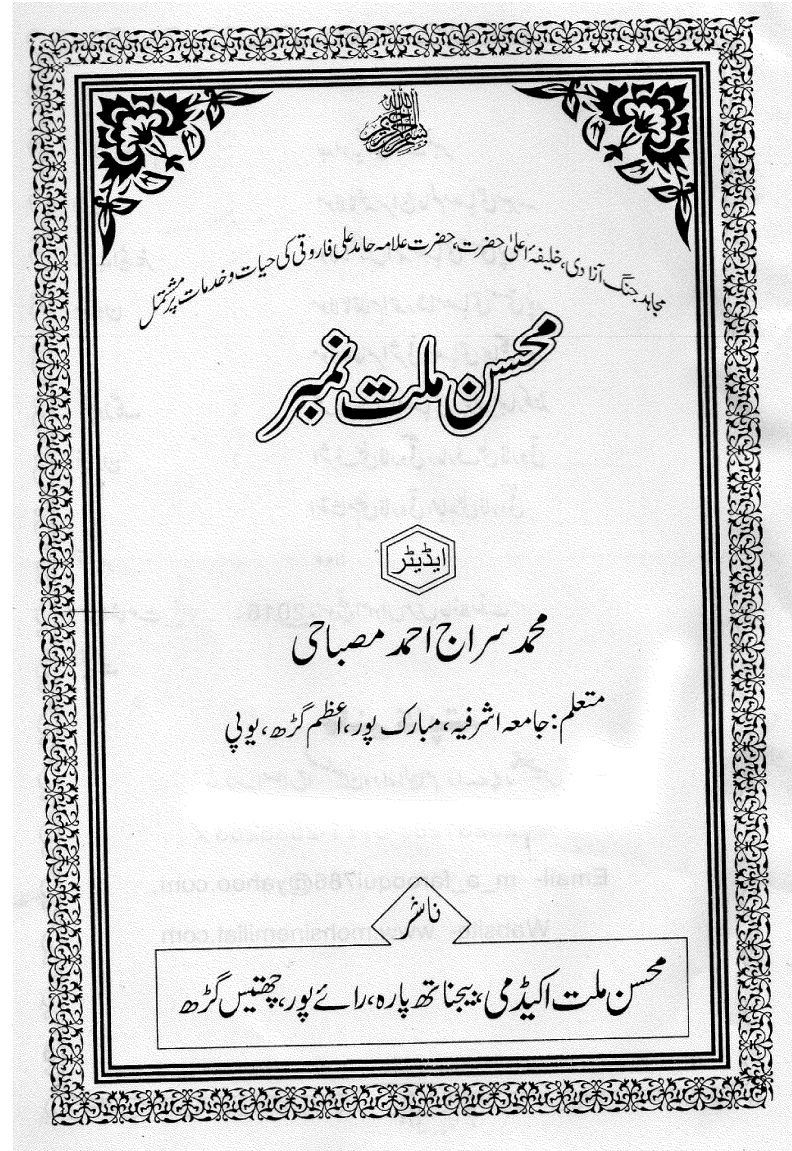 بسم اللہ الرحمن الرحیم
مجاہد جنگ آزادی، خلیفۂ اعلیٰ حضرت، حضرت علامہ حامد علی فاروقی کی حیات و خدمات پر مشتمل
محسن ملت نمبر
ایڈیٹر
محمد سراج احمد مصباحی
متعلم: جامعہ اشرفیہ، مبارک پور، اعظم گڑھ، یوپی
ناشر
محسن ملت اکیڈمی، بیجناتھ پارہ، رائے پور، چھتیس گڑھ